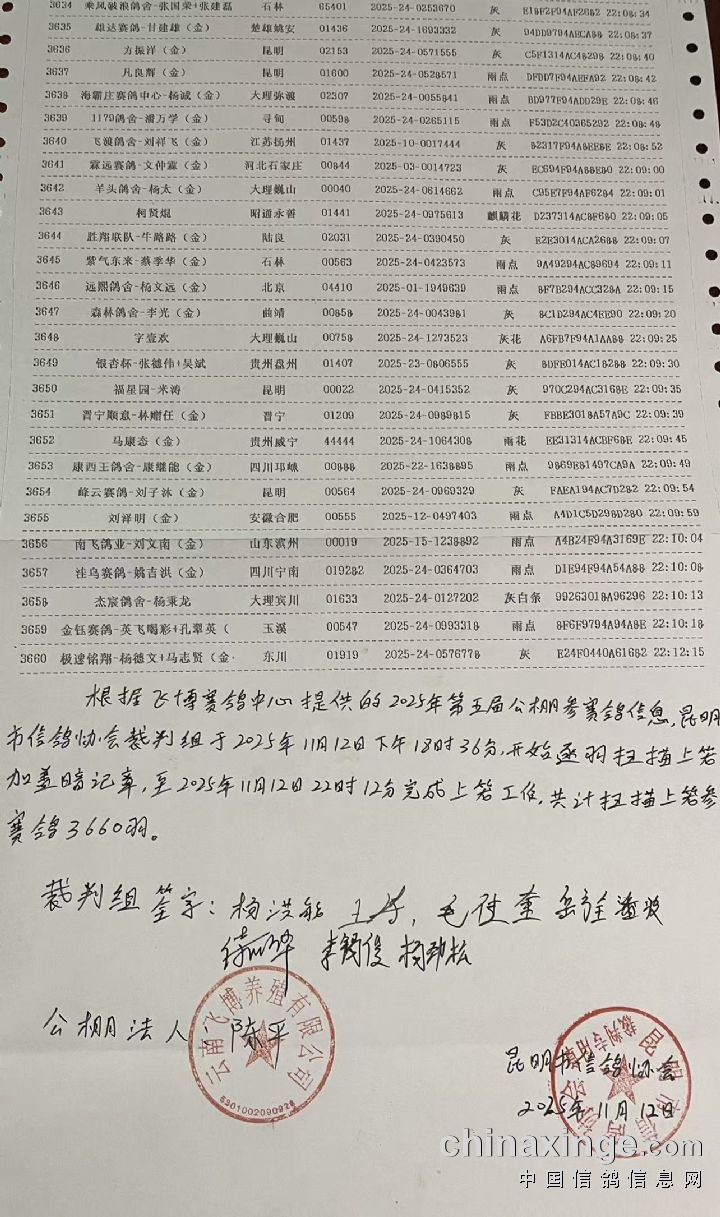 3634 乘风破浪鸽舍-张国荣+张建磊 石林 65401 2025-24-0253670 灰 E18F2F94AF2682 22:08:34
3635 雄达赛鸽-甘建雄(金) 楚雄姚安 01436 2025-24-1693332 灰 94DD9794AECA88 22:08:37
3636 方振洋(金) 昆明 02153 2025-24-0571555 灰 C5F1314AC48298 22:08:40
3637 凡良辉(金) 昆明 01600 2025-24-0528571 雨点 DFDD7F94AEFA92 22:08:42
3638 海霸庄赛鸽中心-杨诚(金) 大理弥渡 02507 2025-24-0055841 雨点 BD977F94ADD29E 22:08:46
3639 1179鸽舍-潘万学(金) 寻甸 00598 2025-24-0265115 雨点 F53D2C40365292 22:08:48
3640 飞渡鸽舍-刘祥飞(金) 江苏扬州 01437 2025-10-0017444 灰 82317F94A8EE8E 22:08:52
3641 霖远赛鸽-文仲霖(金) 河北石家庄 00844 2025-03-0014723 灰 EC694F94A88E80 22:09:00
3642 羊头鸽舍-杨太(金) 大理巍山 00040 2025-24-0614662 雨点 C95E7F94AF6284 22:09:01
3643 柯贤焜 昭通永善 01441 2025-24-0975613 麒麟花 D237314AC8F680 22:09:05
3644 胜翔联队-牛路路(金) 陆良 02031 2025-24-0390450 灰 E2E3014ACA2688 22:09:07
3645 紫气东来-蔡季华(金) 石林 00563 2025-24-0423573 雨点 9A49294AC89694 22:09:11
3646 远熙鸽舍-杨文远(金) 北京 04410 2025-01-1949639 雨点 8F7B294ACC328A 22:09:15
3647 森林鸽舍-李光(金) 曲靖 00858 2025-24-0043981 灰 8C1D294AC4EE90 22:09:20
3648 字壹欢 大理巍山 00758 2025-24-1273523 灰花 A6FB7F94A1AA88 22:09:25
3649 银杏杯-张德伟+吴斌 贵州盘州 01407 2025-23-0806555 灰 8DFE014AC18288 22:09:30
3650 福星园-米涛 昆明 00022 2025-24-0415352 灰 970C294AC3168E 22:09:35
3651 晋宁顺意-林赠任(金) 晋宁 01209 2025-24-0989815 灰 FBBE3018A57A9C 22:09:39
3652 马康态(金) 贵州威宁 44444 2025-24-1064308 雨花 EE31314ACBF68E 22:09:45
3653 康西王鸽舍-康继能(金) 四川邛崃 00888 2025-22-1638895 雨点 9869E81497CA9A 22:09:49
3654 峰云赛鸽-刘子沐(金) 昆明 00564 2025-24-0969329 灰 FAEA194AC7D282 22:09:54
3655 刘祥明(金) 安徽合肥 00555 2025-12-0497403 雨点 A4D1C5D298D280 22:09:59
3656 南飞鸽业-刘文南(金) 山东滨州 00019 2025-15-1238892 雨点 A4B24F94A3169E 22:10:04
3657 洼乌赛鸽-姚吉洪(金) 四川宁南 019282 2025-24-0364703 雨点 D1E94F94A54A88 22:10:08
3658 杰宸鸽舍-杨秉龙 大理宾川 01633 2025-24-0127202 灰白条 99263018A96296 22:10:13
3659 金钰赛鸽-英飞喝彩+孔翠英( 玉溪 00547 2025-24-0993318 雨点 8F6F9794A94A8E 22:10:18
3660 极速铭翔-杨德文+马志贤(金· 东川 01919 2025-24-0576778 灰 E24F0440A61682 22:12:15
根据飞博赛鸽中心提供的2025年第五届公棚参赛鸽信息,昆明
市信鸽协会裁判组于2025年11月12日下午18时36分,开始逐羽扫描上笼
加盖暗记章,至2025年11月12日22时12分完成上笼工作,共计扫描上笼参
赛鸽3660羽。
裁判组签字:杨洪敏
李锡俊 杨劲松
公棚法人:陈平
云南飞博养殖有限公司
5301002090928
昆明市信鸽协会
2025年11月12日
昆明市信鸽协会
裁判专用章
chinaxinge.com
中国信鸽信息网